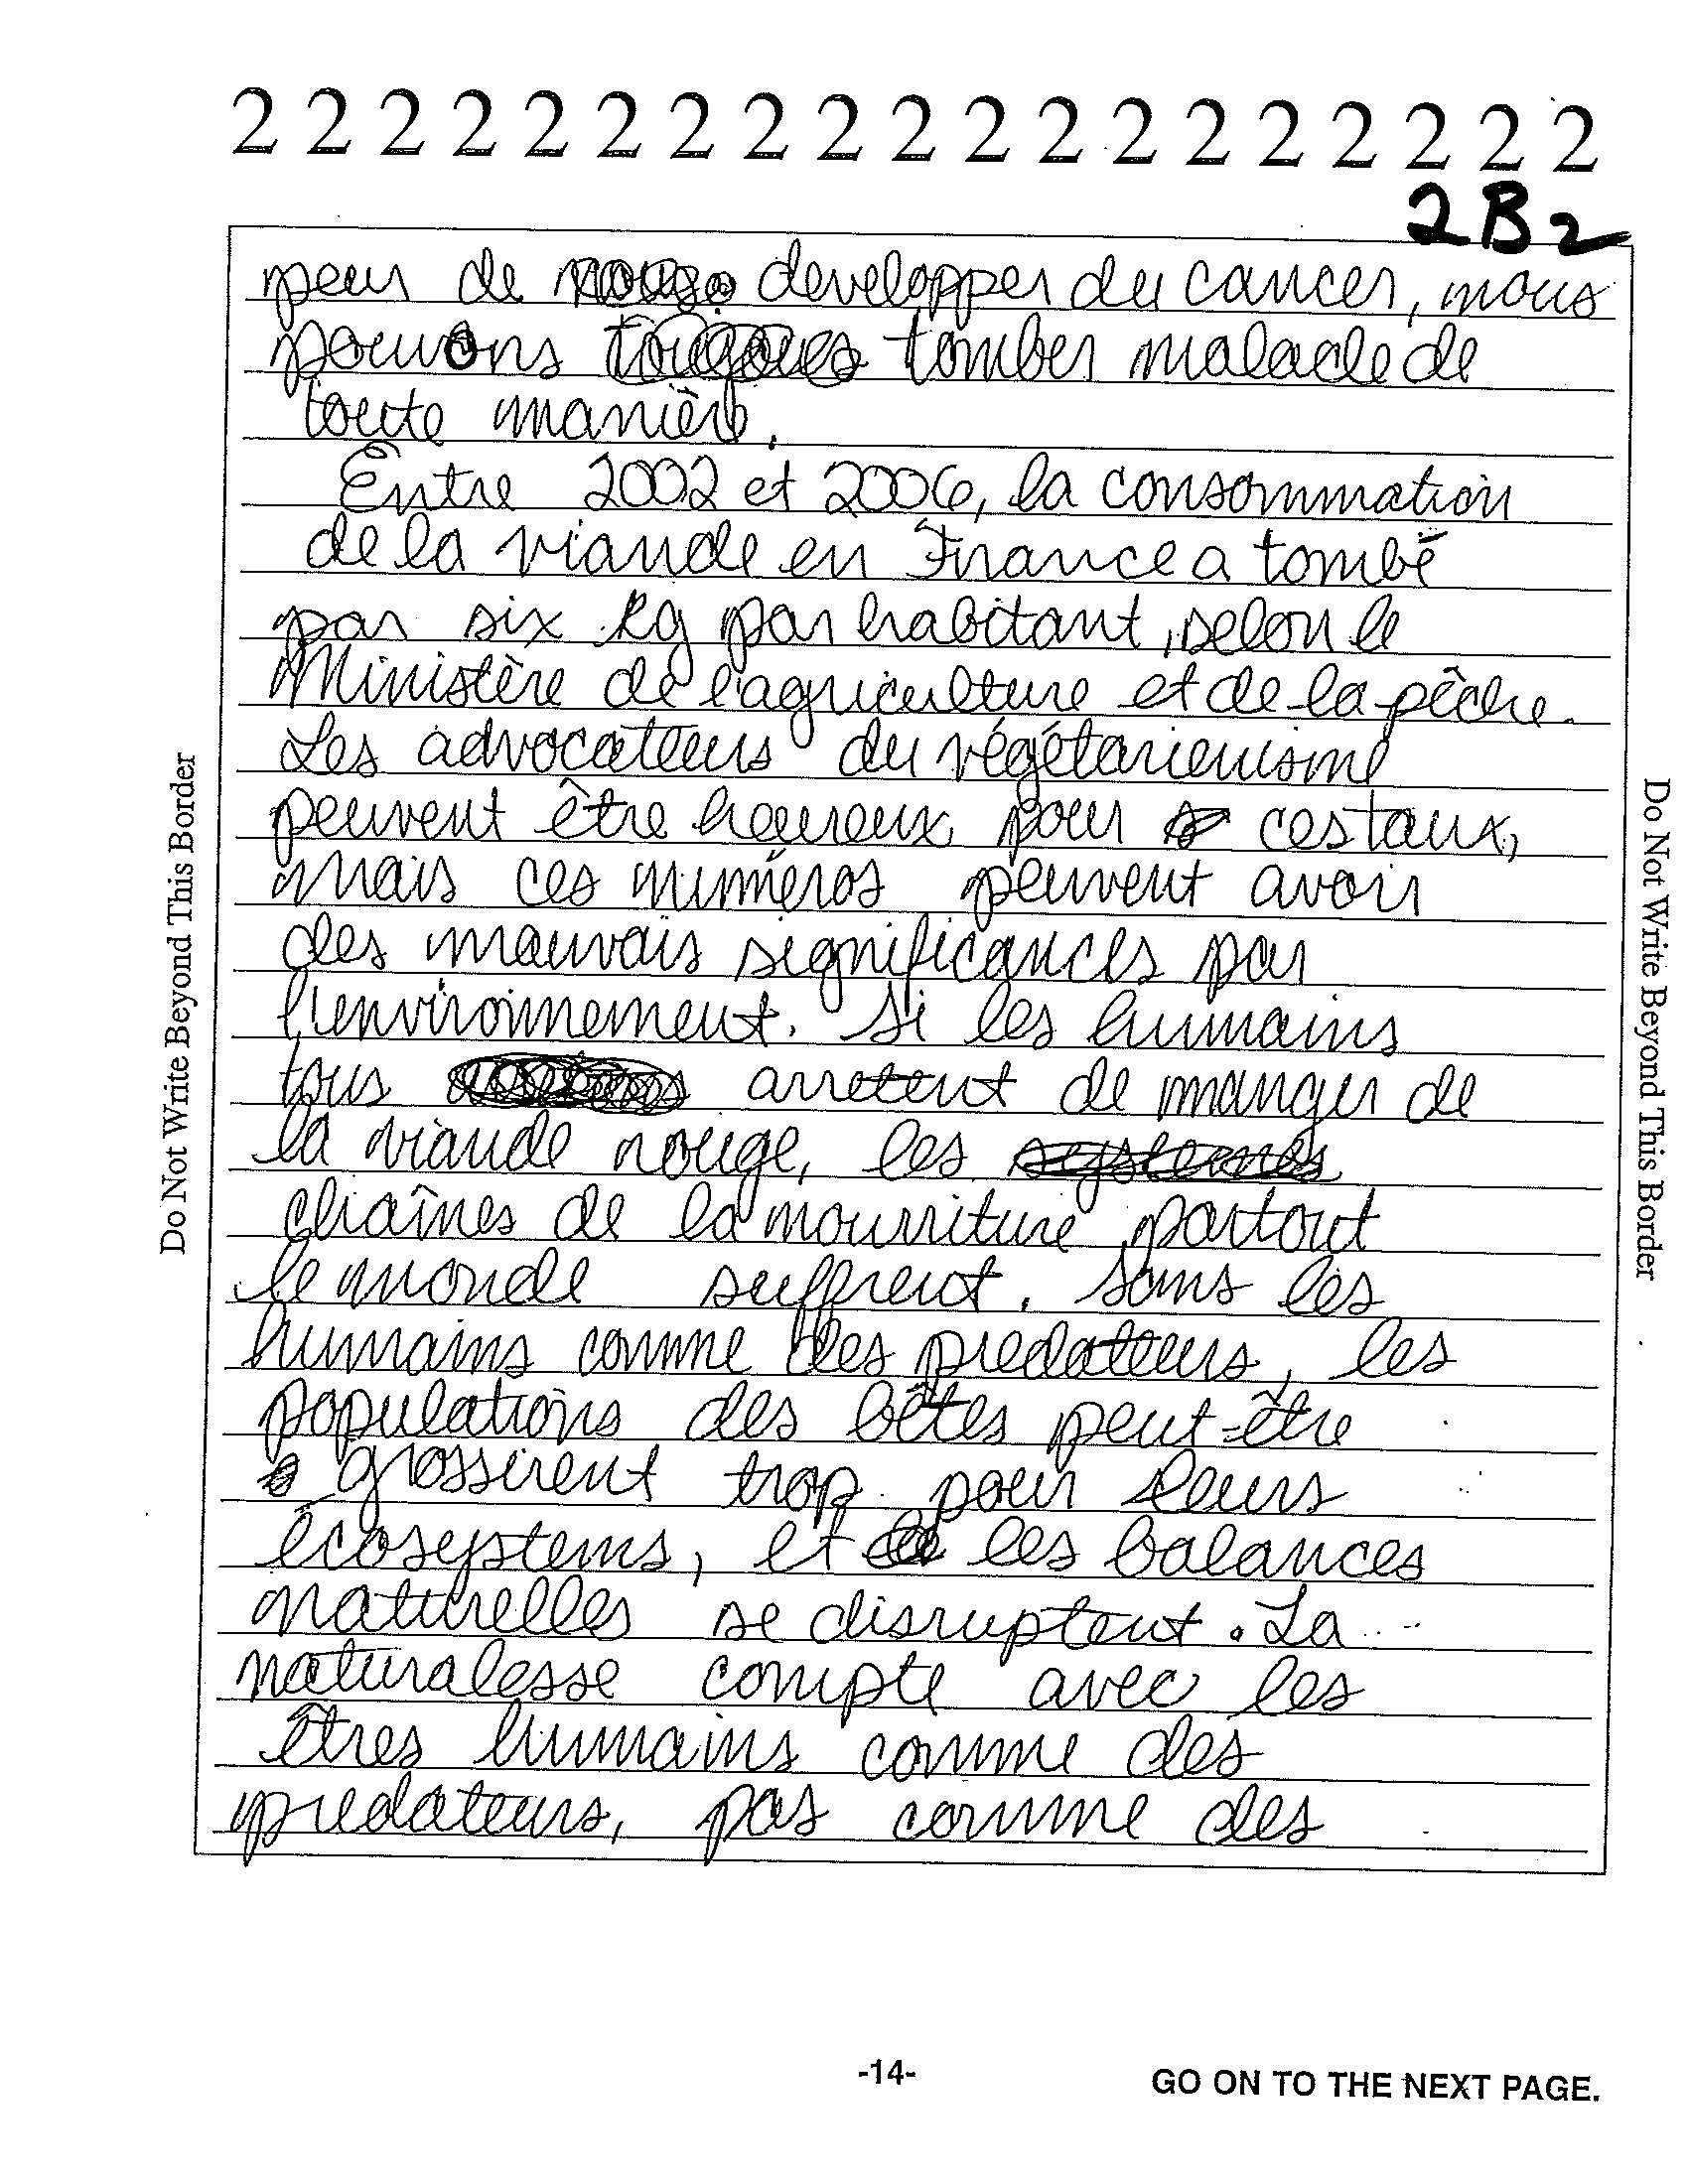 2 2 2 2 2 2 2 2 2 2 2 2 2 2 2 2 2 2 2
2B2
peur de developper du cancer, nous
pouvons tomber malade de
toute manière.
Entre 2002 et 2006, la consommation
de la viande en France a tombé
par six kg par habitant, selon le
Ministère de l'agriculture et de la pêche.
Les advocateurs du végétarienisme
peuvent être heureux pour ces taux,
mais ces numéros peuvent avoir
des mauvais significances par
l'environnement. Si les humains
tous arretent de manger de
la viande rouge, les
chaînes de la nourriture partout
le monde suffrent. Sans les
humains comme des predateurs, les
populations des bêtes peut-être
grossirent trop pour leurs
écosystems, et les balances
naturelles se disruptent. La
naturalesse compte avec les
êtres humains comme des
predateurs, pas comme des
Do Not Write Beyond This Border
Do Not Write Beyond This Border
-14-
GO ON TO THE NEXT PAGE.